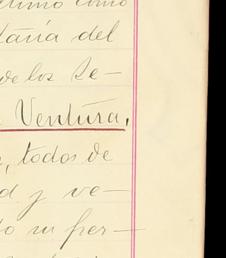 como
taría del
de los Se-
Ventura,
, todos de
d y ve-
do su per-